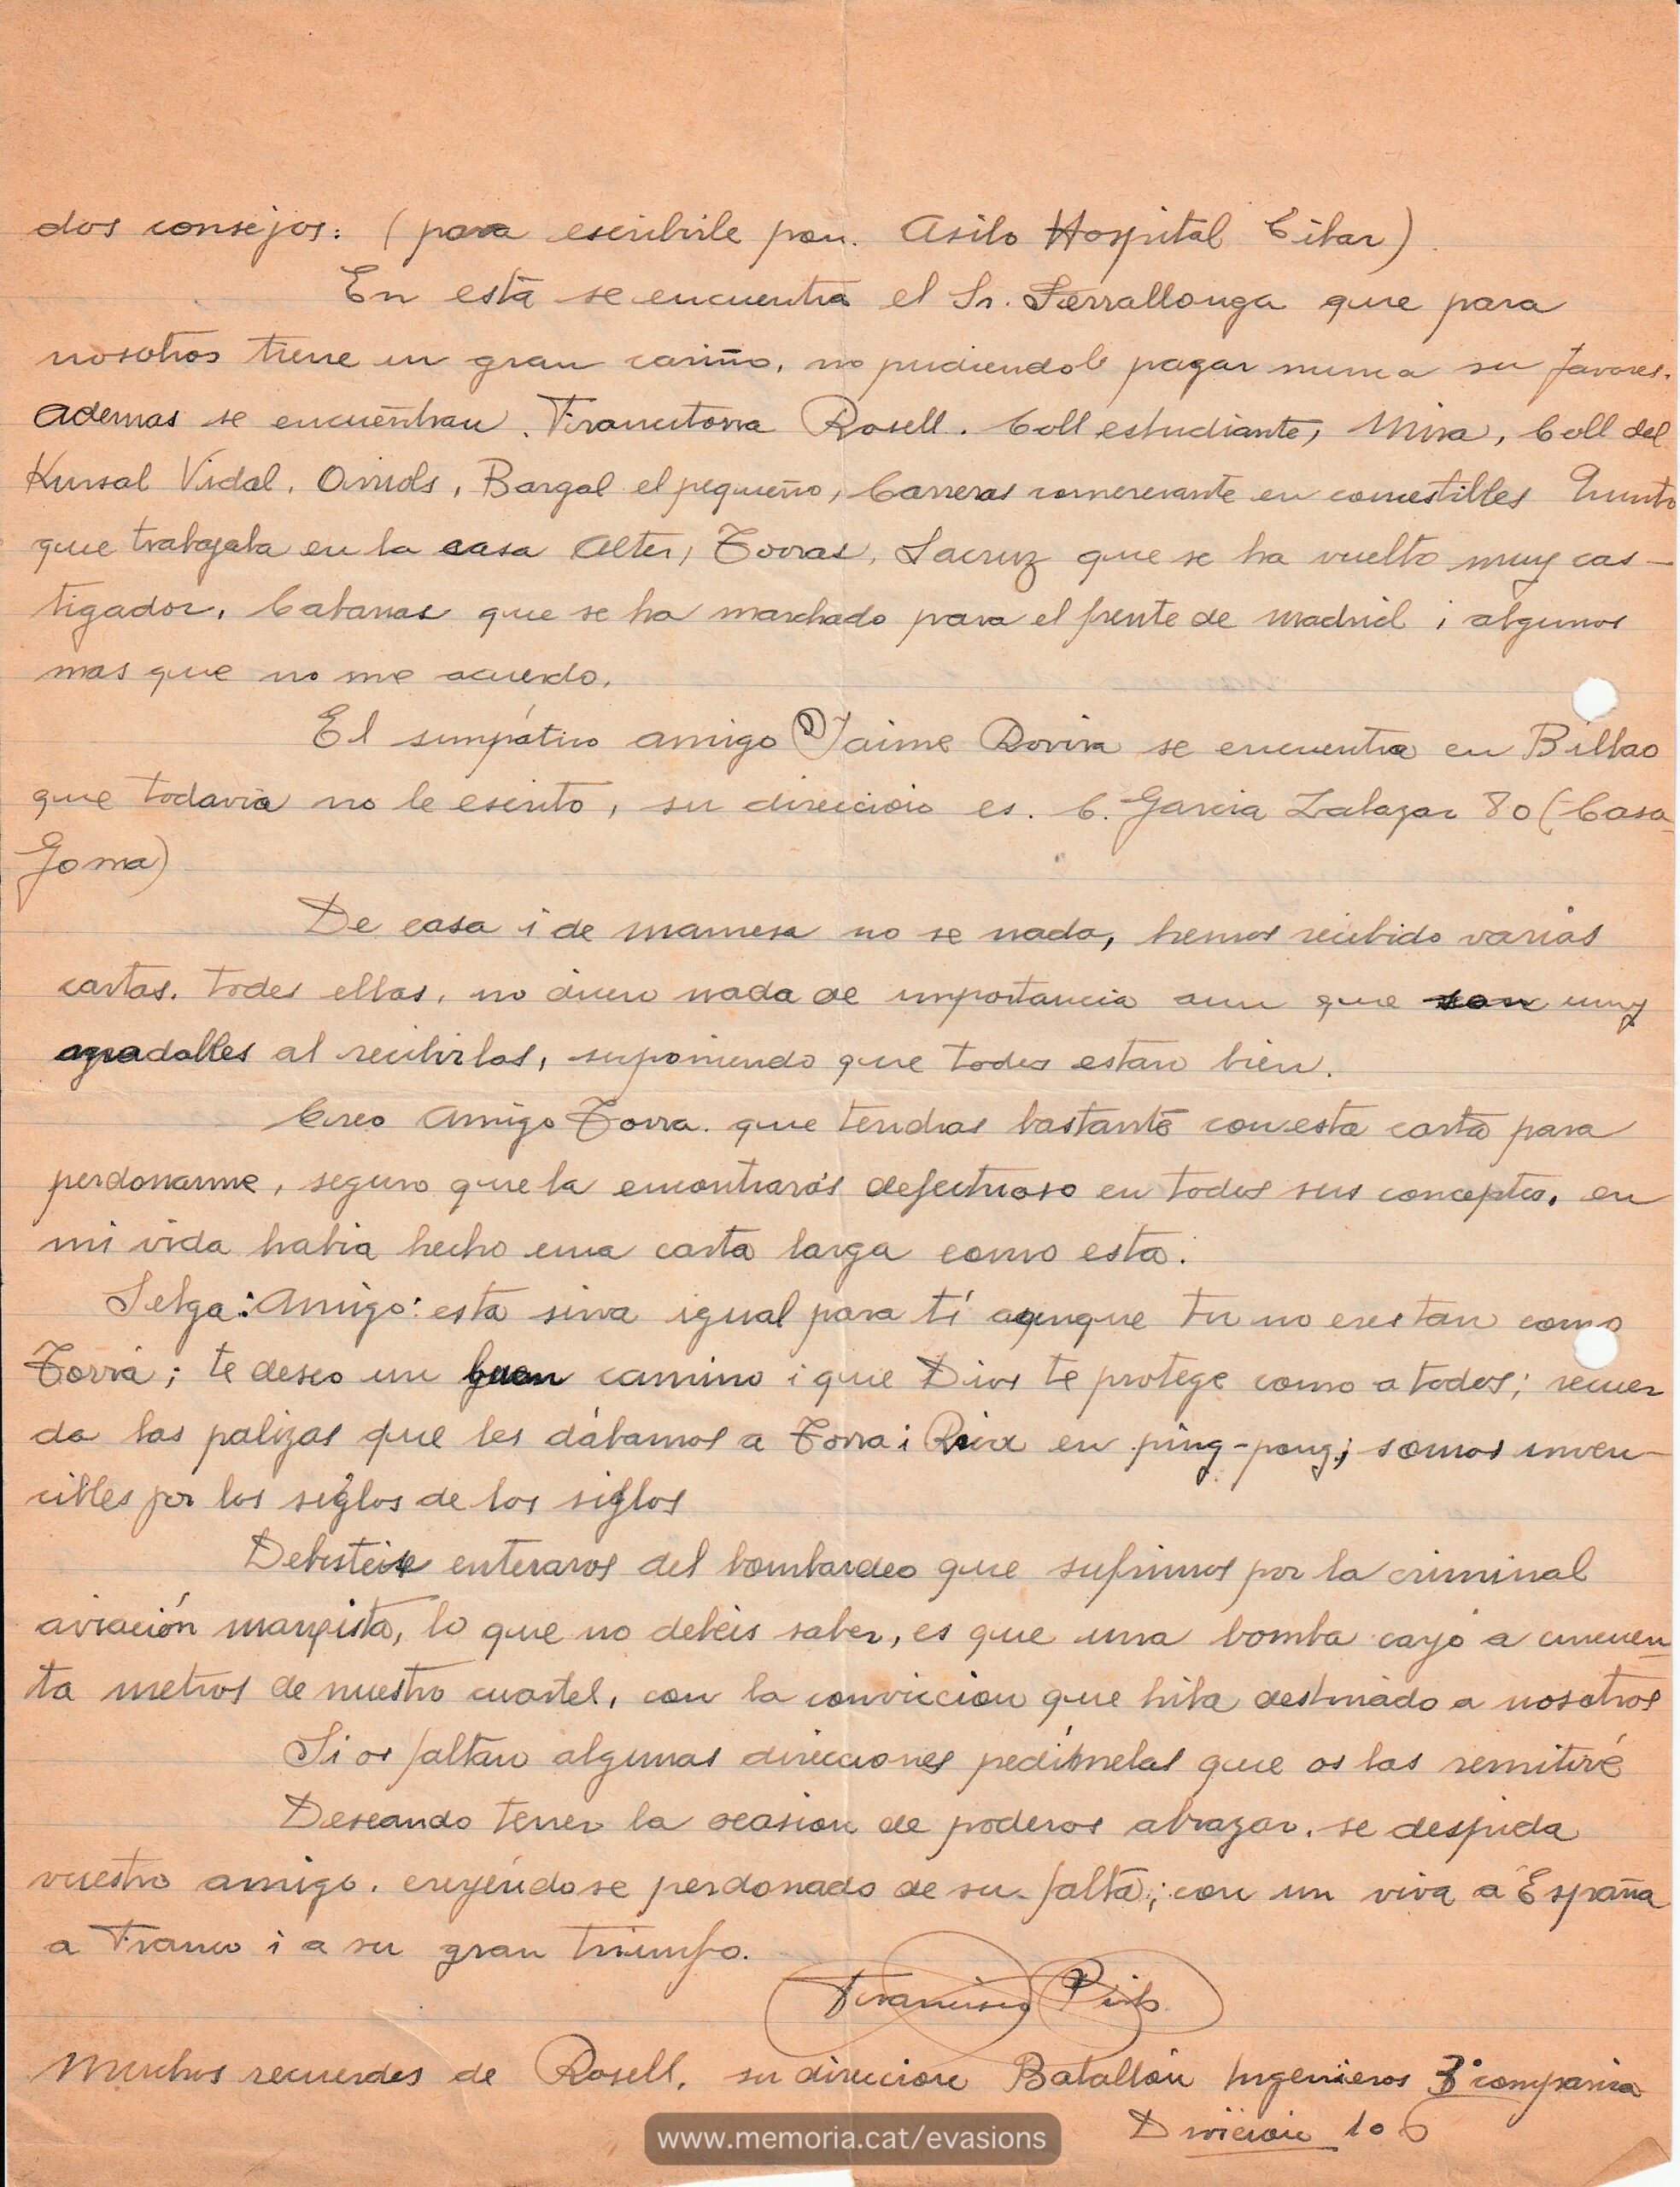 dos consejos: (para escribirle pon. Asilo Hospital Eibar).
En esta se encuentra el Sr. Serrallonga que para
nosotros tiene un gran cariño, no pudiendole pagar nunca su favores.
Ademas se encuentran. Francitorra Rosell. Coll estudiante, Mira, Coll del
Kursal Vidal, Oriols, Bargal el pequeño, Carreras comerciante en comestibles Quinto
que trabajaba en la casa Alter, Torras, Lacruz que se ha vuelto muy cas-
tigador, Cabanas que se ha marchado para el frente de madrid i algunos
mas que no me acuerdo.
El simpático amigo Jaime Rovira se encuentra en Bilbao
que todavia no le escrito, su direccioio es. C. Garcia Zalazar 80 (Casa
Goma)
De casa i de manresa no se nada, hemos recibido varias
cartas. todes ellas, no dicen nada de importancia aun que son muy
agradables al recibirlas, suponiendo que todos estan bien.
Creo Amigo Torra. que tendras bastante con esta carta para
perdonarme, seguro que la encontrarás defectuoso en todos sus conceptos, en
mi vida habia hecho una carta larga como esta.
Selga: Amigo: esta sirva igual para tí aunque tu no eres tan como
Torra; te deseo un buen camino i que Dios te protege como a todos; recuer
da las palizas que les dábamos a Torra i Riera en ping-pong; somos inven-
cibles por los siglos de los siglos
Debisteis enteraros del bombardeo que sufrimos por la criminal
aviación marxista, lo que no debeis saber, es que una bomba cayó a cincuen-
ta metros de nuestro cuartel, con la conviccion que hiba destinado a nosotros
Si os faltan algunas direcciones pedírmelas que os las remitiré
Deseando tener la ocasion de poderos abrazar, se despida
vuestro amigo. creyéndose perdonado de su falta; con un viva a España
a Franco i a su gran triunfo.
Francisco
Muchos recuerdos de Rosell, su direccion Batallón Ingenieros 3ª compania
Division 106
www.memoria.cat/evasions